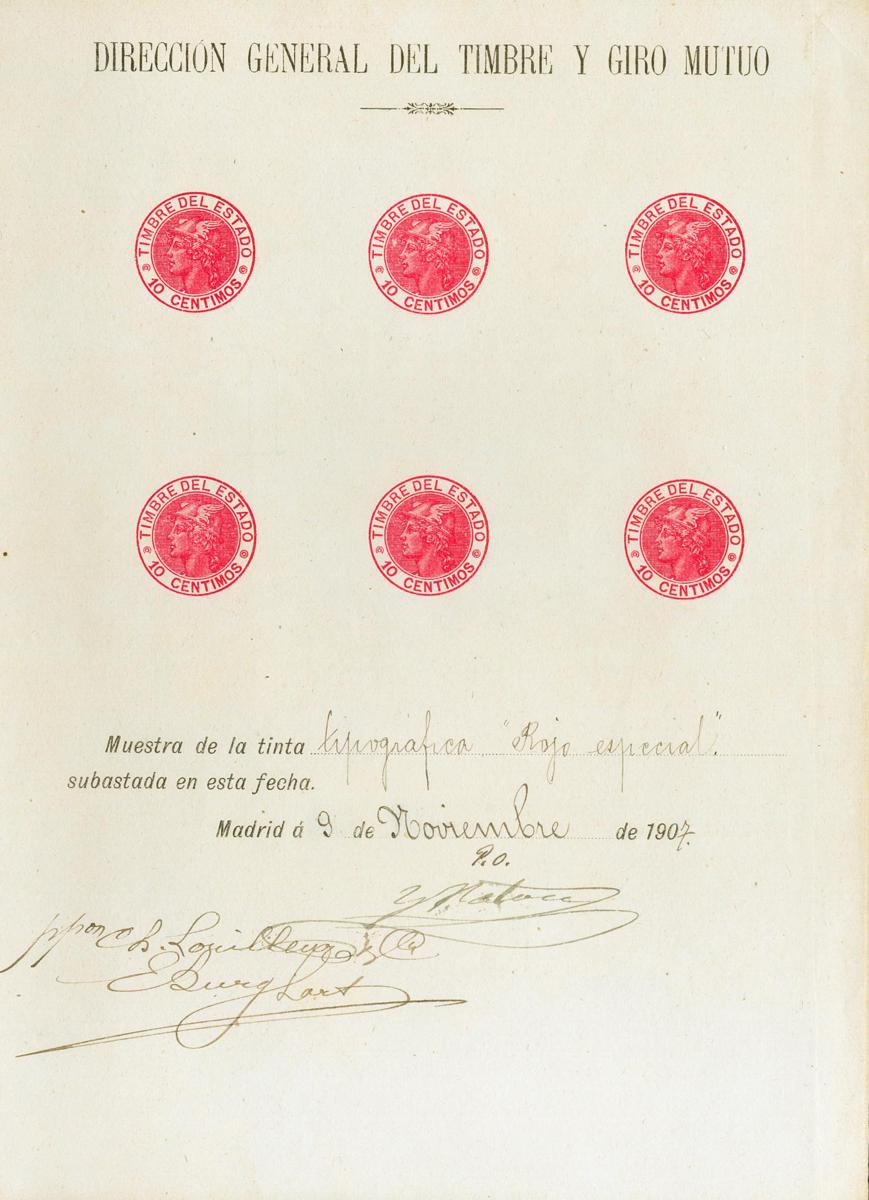 DIRECCIÓN GENERAL DEL TIMBRE Y GIRO MUTUO
TIMBRE DEL ESTADO
10 CENTIMOS
TIMBRE DEL ESTADO
10 CENTIMOS
TIMBRE DEL ESTADO
10 CENTIMOS
TIMBRE DEL ESTADO
10 CENTIMOS
TIMBRE DEL ESTADO
10 CENTIMOS
TIMBRE DEL ESTADO
10 CENTIMOS
Muestra de la tinta tipográfica "Rojo especial".
subastada en esta fecha.
Madrid á 9 de Noviembre de 1907.
P.O.
ppon Ch. Lorilleux y Cia